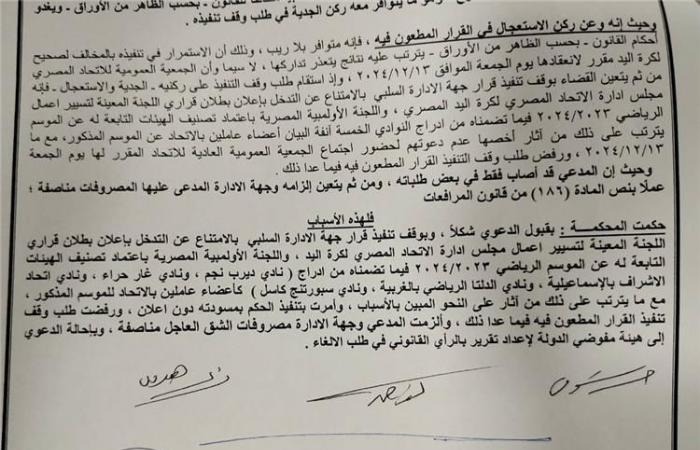 وقف تنفيذه .
وحيث إنه وعن ركن الاستعجال في القرار المطعون فيه ، فإنه متوافر بلا ريب ، وذلك أن الاستمرار في تنفيذه بالمخالف لصحيح
أحكام القانون - بحسب الظاهر من الأوراق - يترتب عليه نتائج يتعذر تداركها ، لا سيما وأن الجمعية العمومية للاتحاد المصري
لكرة اليد مقرر لانعقادها يوم الجمعة الموافق ٢٠٢٤/١٢/١٣ ، وإذ استقام طلب وقف التنفيذ على ركنيه - الجدية والاستعجال - فإنه
من ثم يتعين القضاء بوقف تنفيذ قرار جهة الادارة السلبي بالامتناع عن التدخل بإعلان بطلان قراري اللجنة المعينة لتسيير اعمال
مجلس ادارة الاتحاد المصري لكرة اليد المصري ، واللجنة الأولمبية المصرية باعتماد تصنيف الهيئات التابعة له عن الموسم
الرياضي ٢٠٢٤/٢٠٢٣ فيما تضمناه من ادراج النوادي الخمسة آنفة البيان أعضاء عاملين بالاتحاد عن الموسم المذكور، مع ما
يترتب على ذلك من آثار أخصها عدم دعوتهم لحضور اجتماع الجمعية العمومية العادية للاتحاد المقرر لها يوم الجمعة
٢٠٢٤/١٢/١٣ ، ورفض طلب وقف التنفيذ القرار المطعون فيه فيما عدا ذلك .
وحيث إن المدعي قد أصاب فقط في بعض طلباته ، ومن ثم يتعين إلزامه وجهة الادارة المدعى عليها المصروفات مناصفة ؛
عملًا بنص المادة (١٨٦) من قانون المرافعات
فلهذه الأسباب
حكمت المحكمة : بقبول الدعوي شكلًا ، وبوقف تنفيذ قرار جهة الادارة السلبي بالامتناع عن التدخل بإعلان بطلان قراري
اللجنة المعينة لتسيير اعمال مجلس ادارة الاتحاد المصري لكرة اليد ، واللجنة الأولمبية المصرية باعتماد تصنيف الهيئات
التابعة له عن الموسم الرياضي ٢٠٢٤/٢٠٢٣ فيما تضمناه من ادراج ( نادي ديرب نجم ، ونادي غار حراء ، ونادي اتحاد
الاشراف بالإسماعيلية ، ونادي الدلتا الرياضي بالغربية ، ونادي سبورتنج كاسل ) كأعضاء عاملين بالاتحاد للموسم المذكور ،
مع ما يترتب على ذلك من آثار على النحو المبين بالأسباب ، وأمرت بتنفيذ الحكم بمسودته دون اعلان ، ورفضت طلب وقف
تنفيذ القرار المطعون فيه فيما عدا ذلك ، وألزمت المدعي وجهة الادارة مصروفات الشق العاجل مناصفة ، وبإحالة الدعوي
إلى هيئة مفوضي الدولة لإعداد تقرير بالرأي القانوني في طلب الالغاء .